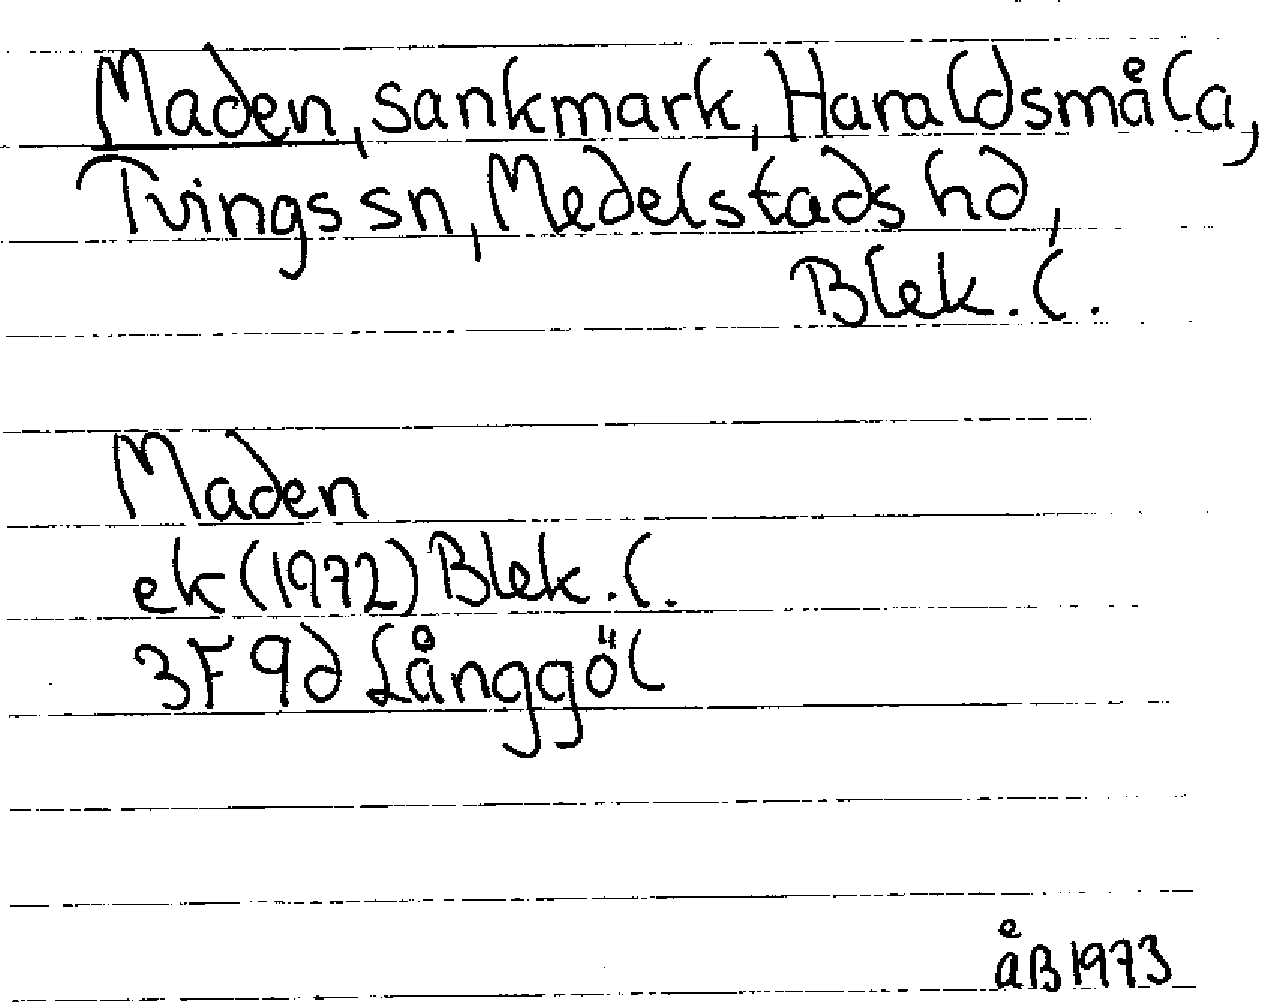 Maden, sankmark, Haraldsmåla,
Tvings sn, Medelstads hd,
Blek. l.
Maden
ek (1972) Blek. l.
3F 9d Långgöl
åB 1973